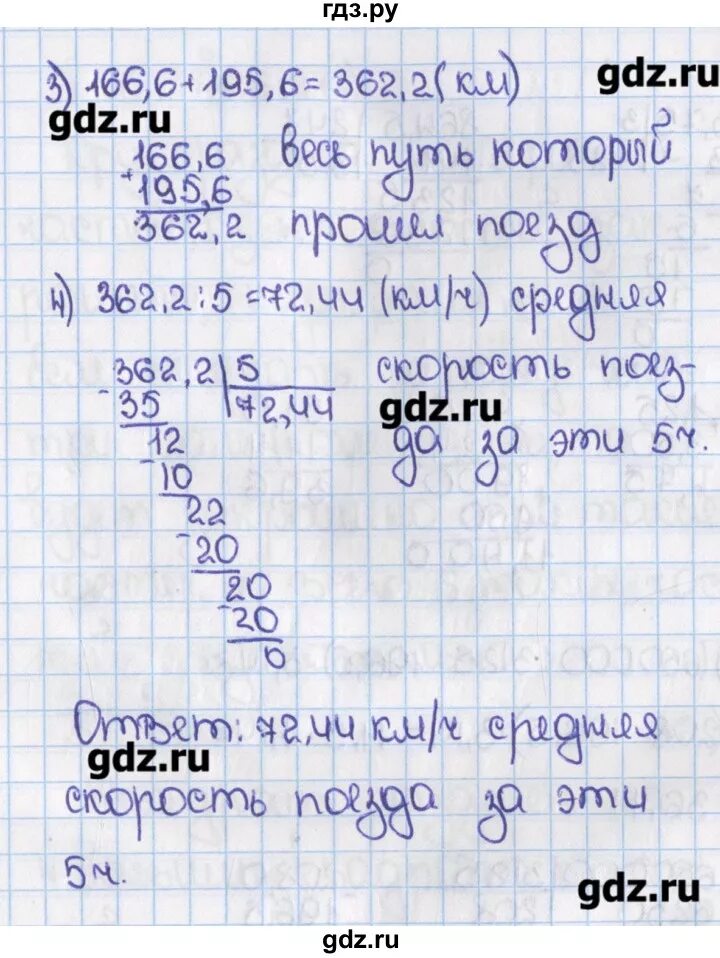 гдз.ру
3) 166,6+195,6=362,2(км)
gdz.ru
gdz.ru
166,6 весь путь который
+
195,6
362,2 прошел поезд
4) 362,2:5=72,44 (км/ч) средняя
362,2 5 скорость поез-
- 35 72,44 gdz.ru
12 да за эти 5ч.
- 10
22
- 20
20
- 20
0
Ответ: 72,44 км/ч средняя
gdz.ru
скорость поезда за эти
5ч.
gdz.ru
gdz.ru